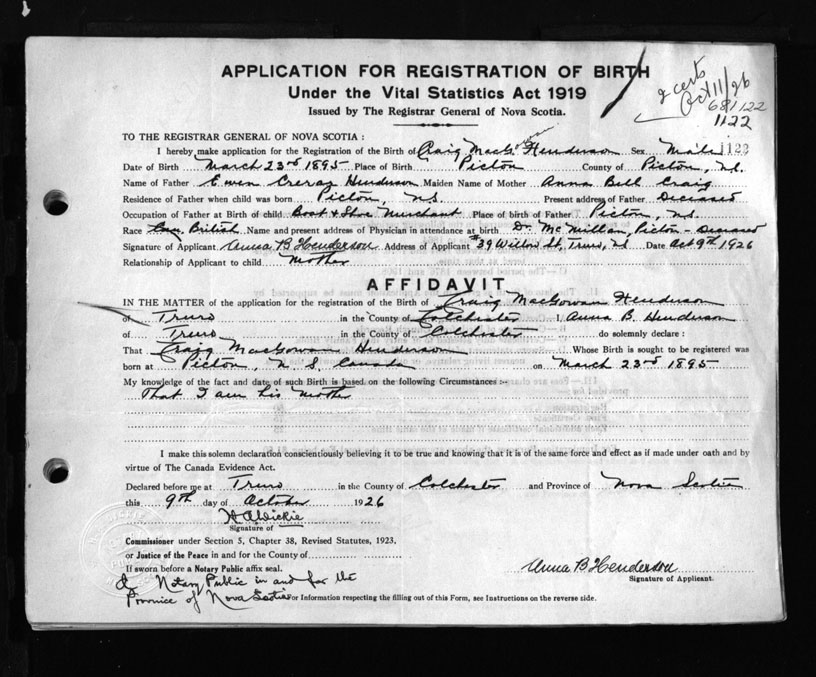 APPLICATION FOR REGISTRATION OF BIRTH
Under the Vital Statistics Act 1919
Issued by The Registrar General of Nova Scotia.
2 certs
Oct 11/26
681122
1122
TO THE REGISTRAR GENERAL OF NOVA SCOTIA :
I hereby make application for the Registration of the Birth of Craig MacGowan Henderson Sex Male 1122
Date of Birth March 23rd 1895 Place of Birth Pictou County of Pictou, N.S.
Name of Father Ewen Crerar Henderson Maiden Name of Mother Anna Bell Craig
Residence of Father when child was born Pictou, N.S. Present address of Father Deceased
Occupation of Father at Birth of child Boot & Shoe Merchant Place of birth of Father Pictou, N.S.
Race British Name and present address of Physician in attendance at birth Dr. McMillan, Pictou - Deceased
Signature of Applicant Anna B Henderson Address of Applicant #39 Willow St, Truro, N.S Date Oct 9th 1926
Relationship of Applicant to child Mother
AFFIDAVIT
IN THE MATTER of the application for the registration of the Birth of Craig MacGowan Henderson
of Truro in the County of Colchester I, Anna B. Henderson
of Truro in the County of Colchester do solemnly declare :
That Craig MacGowan Henderson Whose Birth is sought to be registered was
born at Pictou, N. S. Canada on March 23rd 1895
My knowledge of the fact and date of such Birth is based on the following Circumstances :-
That I am his Mother
I make this solemn declaration conscientiously believing it to be true and knowing that it is of the same force and effect as if made under oath and by
virtue of The Canada Evidence Act.
Declared before me at Truro in the County of Colchester and Province of Nova Scotia
this 9th day of October 1926
H A Dickie
Signature of
Commissioner under Section 5, Chapter 38, Revised Statutes, 1923,
or Justice of the Peace in and for the County of
If sworn before a Notary Public affix seal.
Anna B Henderson
Signature of Applicant.
A Notary Public in and for the
Province of Nova Scotia
For Information respecting the filling out of this Form, see Instructions on the reverse side.